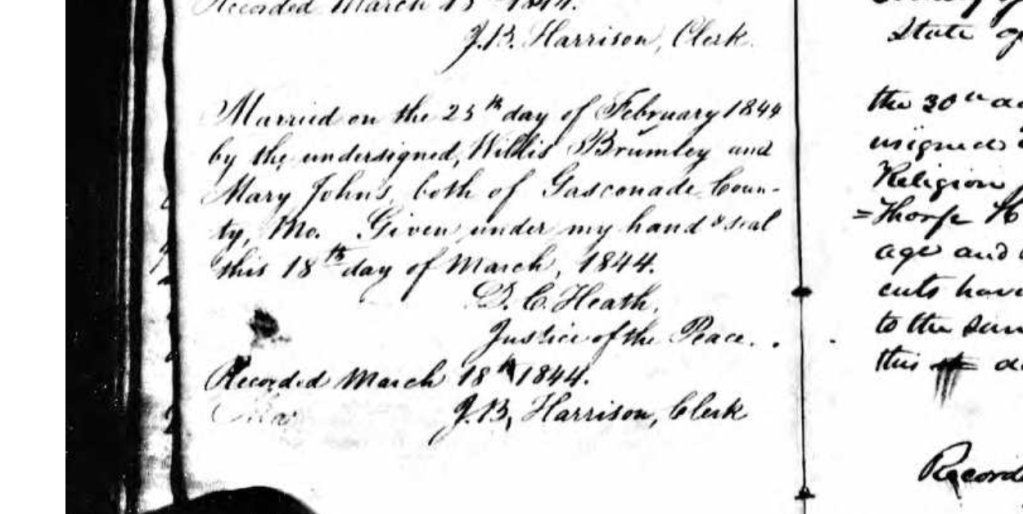 Recorded March 15th 1844.
J.B. Harrison, Clerk.
Married on the 25th day of February 1844
by the undersigned, Willis Brumley and
Mary Johns, both of Gasconade Coun-
ty, Mo. Given under my hand & seal
this 18th day of March, 1844.
D. C. Heath,
Justice of the Peace.
Recorded March 18th 1844.
J.B. Harrison, Clerk
State of
the 30th
Religion
=Thorp
age and
cuts have
to the
this
Record